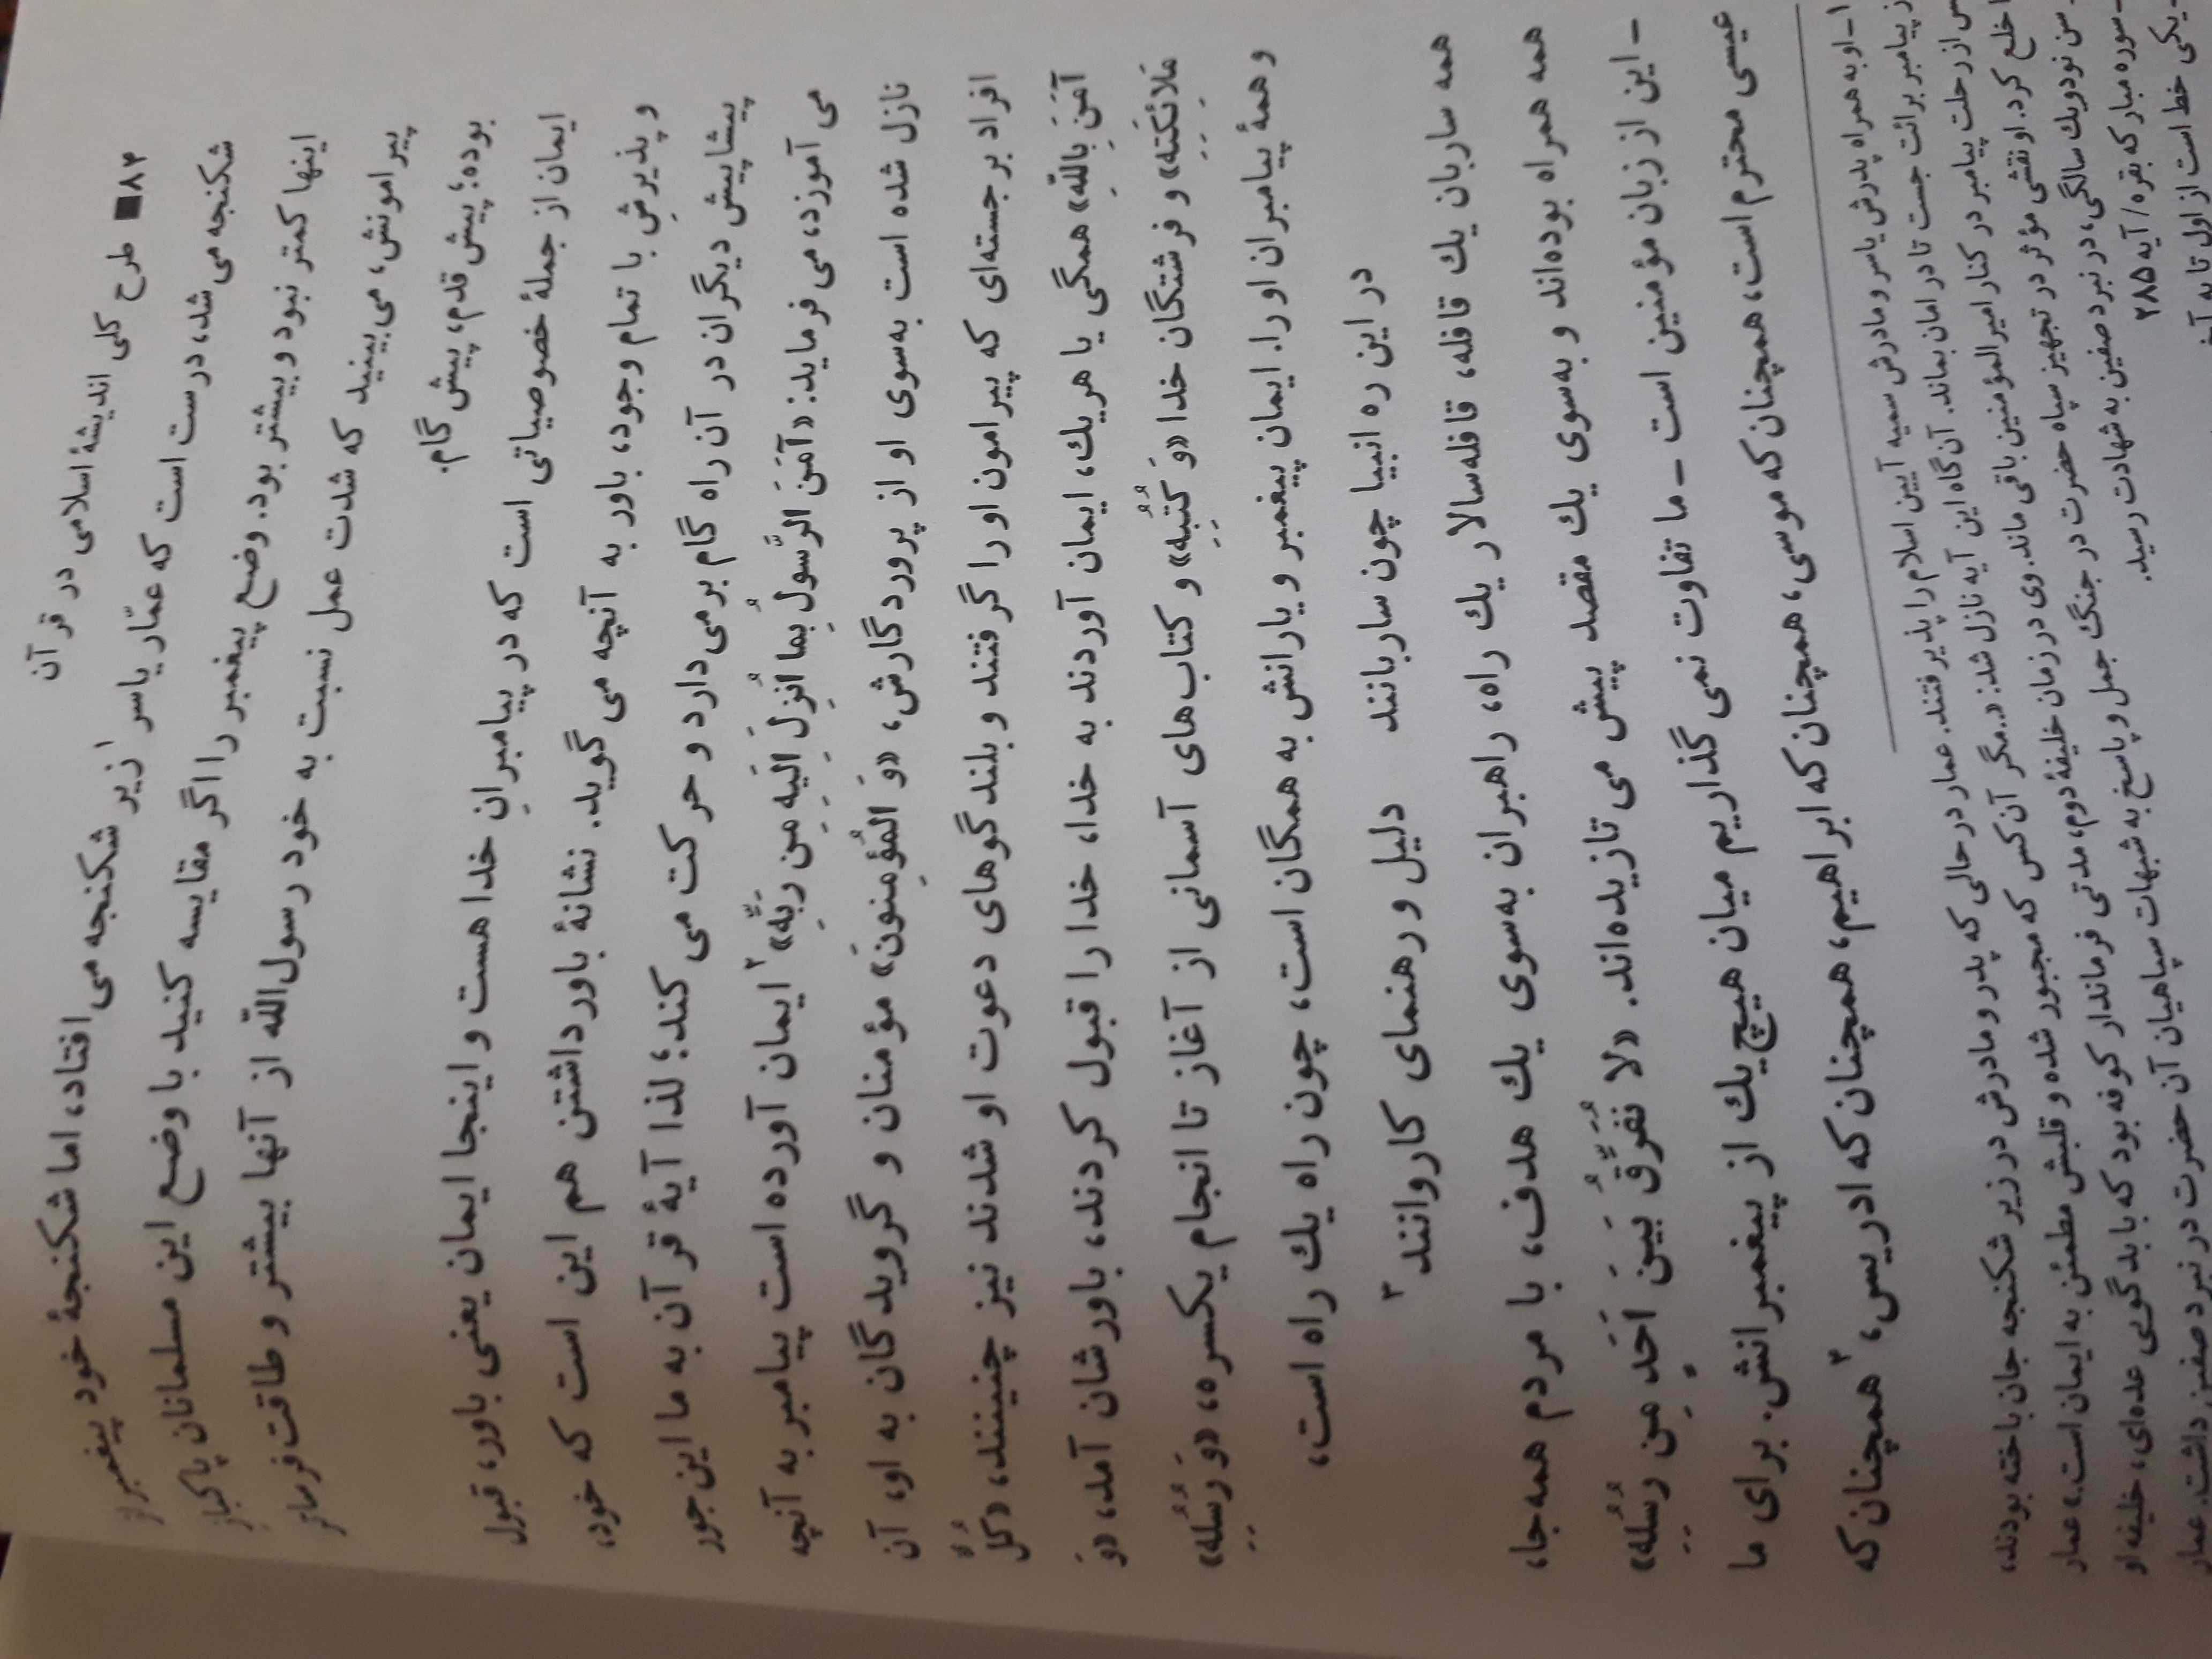 ۸۴ ■ طرح کلی اندیشهٔ اسلامی در قرآن
شکنجه می‌شد، درست است که عمّار یاسر۱ زیر شکنجه می‌افتاد، اما شکنجهٔ خود پیغمبر از
اینها کمتر نبود و بیشتر بود. وضع پیغمبر را اگر مقایسه کنید با وضع این مسلمانان پاکباز
پیرامونش، می‌بینید که شدت عمل نسبت به خود رسول‌الله از آنها بیشتر و طاقت‌فرساتر
بوده؛ پیش قدم، پیش گام.
ایمان از جملهٔ خصوصیاتی است که در پیامبرانِ خدا هست و اینجا ایمان یعنی باور، قبول
و پذیرشِ با تمام وجود، باور به آنچه می‌گوید. نشانهٔ باور داشتن هم این است که خود،
پیشاپیش دیگران در آن راه گام برمی‌دارد و حرکت می‌کند؛ لذا آیهٔ قرآن به ما این جور
می‌آموزد، می‌فرماید: «آمَنَ الرَّسولُ بِما اُنزِلَ اِلَیهِ مِن رَبِّهِ»۲ ایمان آورده است پیامبر به آنچه
نازل شده است به‌سوی او از پروردگارش، «وَ المُؤمِنونَ» مؤمنان و گرویدگان به او، آن
افراد برجسته‌ای که پیرامون او را گرفتند و بلندگوهای دعوت او شدند نیز چنینند، «کُلٌّ
آمَنَ بِاللهِ» همگی یا هریك، ایمان آوردند به خدا، خدا را قبول کردند، باورشان آمد، «وَ
مَلائِکَتِهِ» و فرشتگان خدا «وَ کُتُبِهِ» و کتاب‌های آسمانی از آغاز تا انجام یکسره، «وَ رُسُلِهِ»
و همهٔ پیامبران او را. ایمان پیغمبر و یارانش به همگان است، چون راه یك راه است،
در این ره انبیا چون ساربانند دلیل و رهنمای کاروانند۳
همه ساربان یك قافله، قافله‌سالار یك راه، راهبران به‌سوی یك هدف، با مردم همه‌جا،
همه همراه بوده‌اند و به‌سوی یك مقصد پیش می‌تازیده‌اند. «لا نُفَرِّقُ بَینَ اَحَدٍ مِن رُسُلِهِ»
ـ این از زبان مؤمنین است ـ ما تفاوت نمی‌گذاریم میان هیچ‌یك از پیغمبرانش. برای ما
عیسی محترم است، همچنان که موسی، همچنان که ابراهیم، همچنان که ادریس،۴ همچنان که
۱ـ او به همراه پدرش یاسر و مادرش سمیه آیین اسلام را پذیرفتند. عمار در حالی که پدر و مادرش در زیر شکنجه جان باخته بودند،
از پیامبر برائت جست تا در امان بماند. آن‌گاه این آیه نازل شد: «..مگر آن کس که مجبور شده و قلبش مطمئن به ایمان است.» عمار
پس از رحلت پیامبر در کنار امیرالمؤمنین باقی ماند. وی در زمان خلیفهٔ دوم، مدتی فرماندار کوفه بود که با بدگویی عده‌ای، خلیفه او
را خلع کرد. او نقشی مؤثر در تجهیز سپاه حضرت در جنگ جمل و پاسخ به شبهات سپاهیان آن حضرت در نبرد صفین داشت. عمار
سن نود‌و‌یك سالگی، در نبرد صفین به شهادت رسید.
ـ سوره مبارکه بقره/ آیه ۲۸۵
ـ یکی خط است از اول تا به